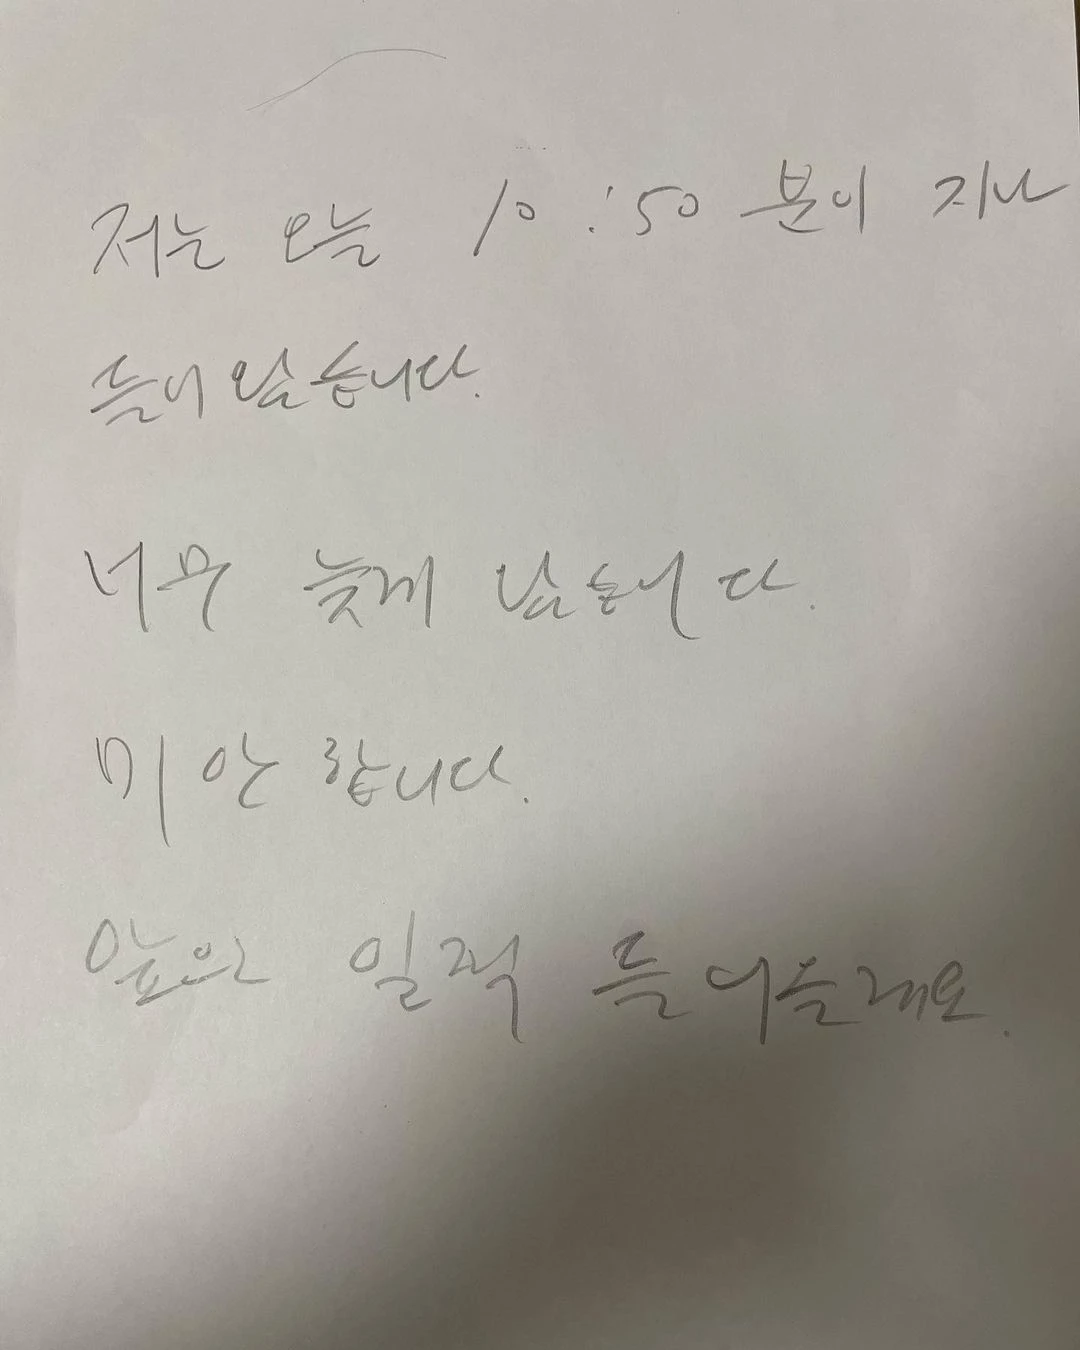 저는 오늘 10:50 분이 지나
들어 왔습니다.
너무 늦게 왔습니다.
미안합니다.
앞으로 일찍 들어올래요.